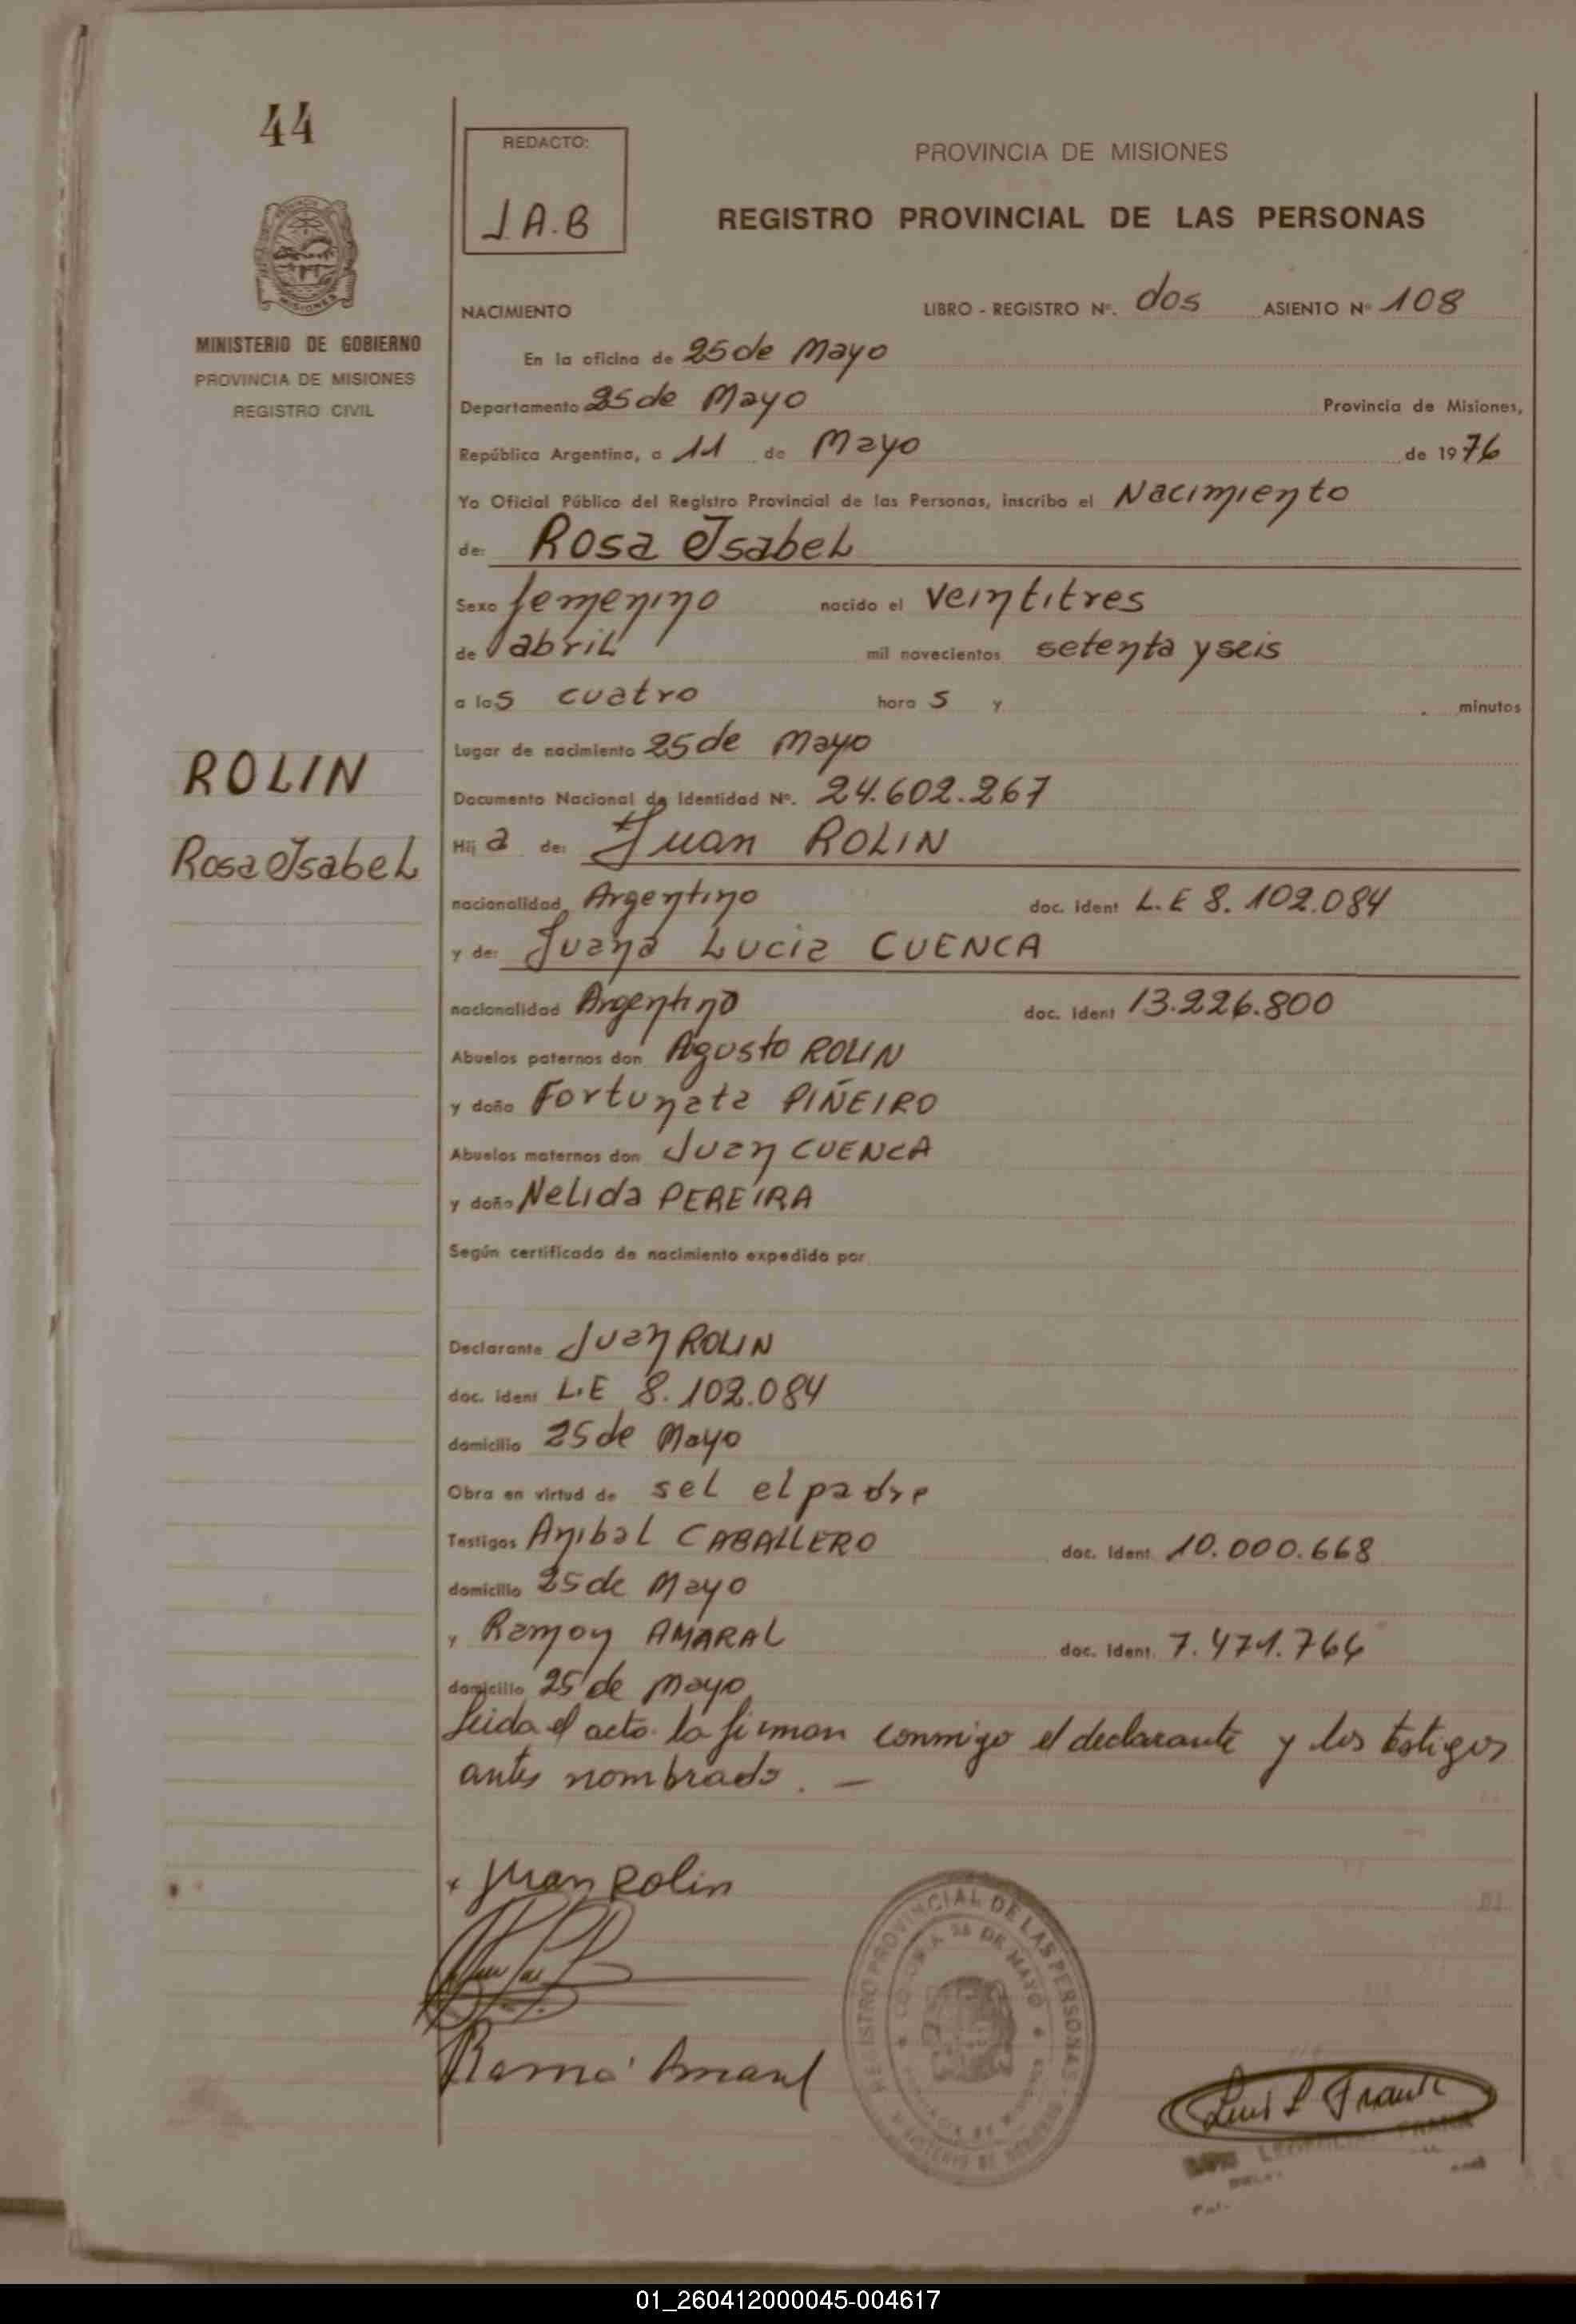 44
REDACTO:
J.A.B
PROVINCIA DE MISIONES
REGISTRO PROVINCIAL DE LAS PERSONAS
MINISTERIO DE GOBIERNO
PROVINCIA DE MISIONES
REGISTRO CIVIL
NACIMIENTO LIBRO - REGISTRO Nº. dos ASIENTO Nº 108
En la oficina de 25 de Mayo
Departamento 25 de Mayo Provincia de Misiones,
República Argentina, a 11 de Mayo de 1976
Yo Oficial Público del Registro Provincial de las Personas, inscribo el Nacimiento
de: Rosa Isabel
Sexo femenino nacido el veintitres
de abril mil novecientos setenta y seis
a las cuatro horas y minutos
Lugar de nacimiento 25 de Mayo
ROLIN
Rosa Isabel
Documento Nacional de Identidad Nº. 24.602.267
Hija de: Juan ROLIN
nacionalidad Argentino doc. ident L.E 8.102.084
y de: Juana Lucia CUENCA
nacionalidad Argentina doc. ident 13.226.800
Abuelos paternos don Agusto ROLIN
y doña Fortunata PIÑEIRO
Abuelos maternos don Juan CUENCA
y doña Nelida PEREIRA
Según certificado de nacimiento expedido por
Declarante Juan ROLIN
doc. ident L.E 8.102.084
domicilio 25 de Mayo
Obra en virtud de sel el padre
Testigos Anibal CABALLERO doc. ident 10.000.668
domicilio 25 de Mayo
y Ramon AMARAL doc. ident. 7.471.764
domicilio 25 de Mayo
Leida el acta la firman conmigo el declarante y los testigos
antes nombrado. —
x Juan Rolin
REGISTRO PROVINCIAL DE LAS PERSONAS
COLONIA 25 DE MAYO
Luis L Frank
01_260412000045-004617